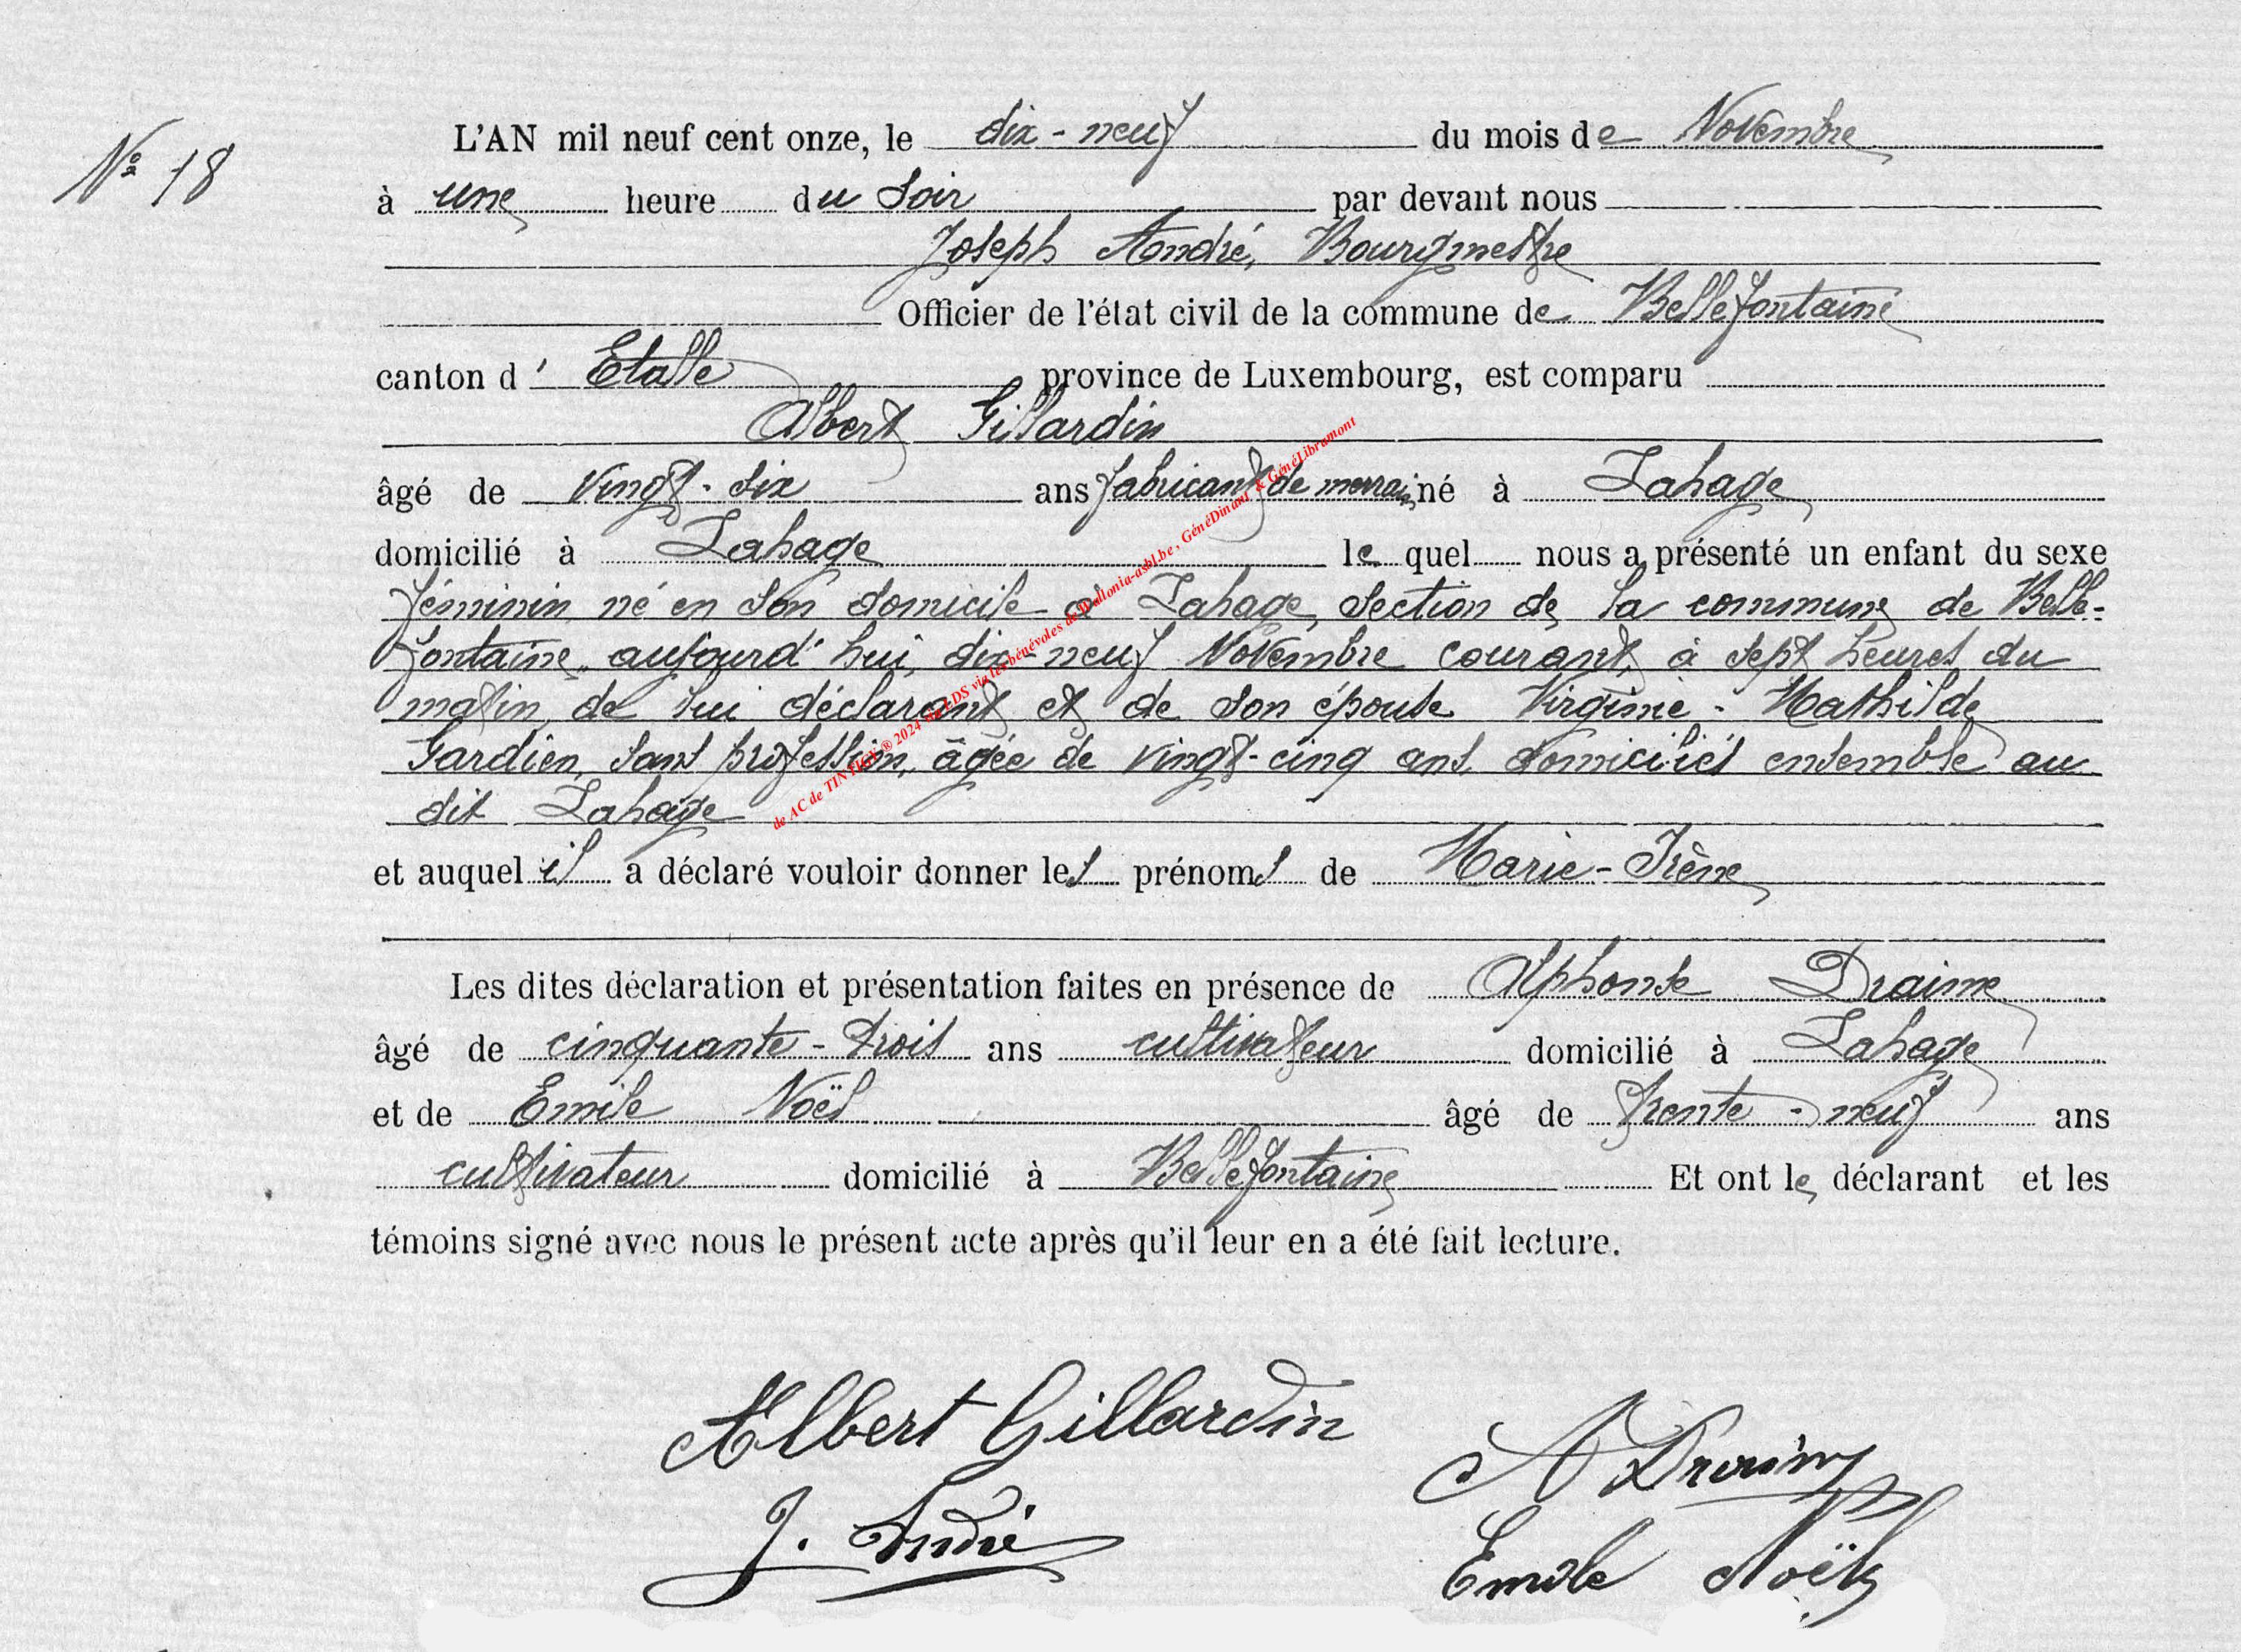 Nº 18
L'AN mil neuf cent onze, le dix-neuf du mois de Novembre
à une heure du soir par devant nous
Joseph André, Bourgmestre
Officier de l'état civil de la commune de Bellefontaine
canton d' Etalle province de Luxembourg, est comparu
Albert Gillardin
âgé de vingt-six ans fabricant de merrain né à Lahage
domicilié à Lahage lequel nous a présenté un enfant du sexe
féminin né en son domicile à Lahage, section de la commune de Belle-
fontaine, aujourd'hui, dix-neuf Novembre courant, à sept heures du
matin, de lui déclarant et de son épouse Virginie-Mathilde
Gardien, sans profession, âgée de vingt-cinq ans, domiciliés ensemble au
dit Lahage
et auquel il a déclaré vouloir donner les prénoms de Marie-Irène
Les dites déclaration et présentation faites en présence de Alphonse Draime
âgé de cinquante-trois ans cultivateur domicilié à Lahage
et de Emile Noël âgé de trente-neuf ans
cultivateur domicilié à Bellefontaine Et ont le déclarant et les
témoins signé avec nous le présent acte après qu'il leur en a été fait lecture.
Albert Gillardin
A Draime
J. André
Emile Noël
de AC de TINTIGNY ® 2024 via LDS via les bénévoles de Wallonia-asbl.be, GénéDinant & GénéLibramont